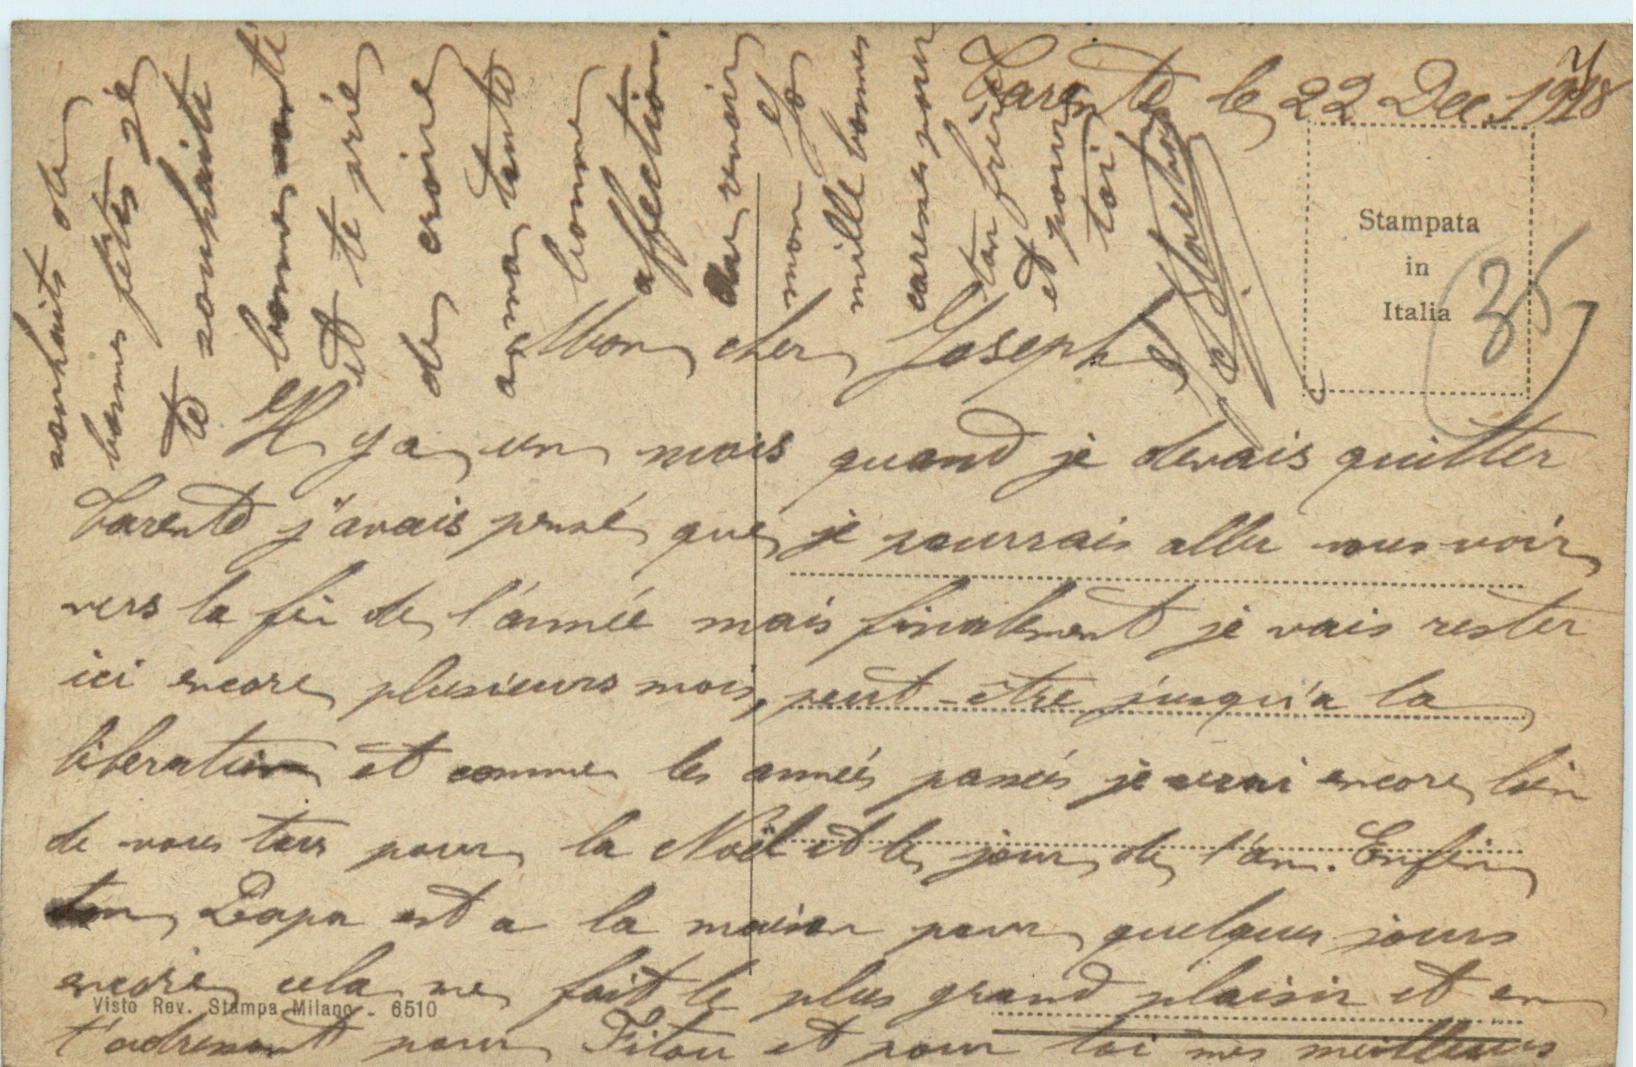 Tarente le 22 Dec. 1918
Mon cher Joseph
Il y a un mois quand je devais quitter
Tarente j'avais pensé que je pourrais aller vous voir
vers la fin de l'année mais finalement je vais rester
ici encore plusieurs mois, peut-être jusqu'a la
liberation et comme les années passées je serai encore loin
de vous tous pour la Noël et le jour de l'an. Enfin
ton Papa est a la maison pour quelques jours
encore cela me fait le plus grand plaisir et en
t'adressant pour Titou et pour toi mes meilleurs
souhaits de
bonnes fêtes je
te souhaite
bonne santé
et te prie
de croire
a ma tante
bonne
affection.
Au revoir
mon Jo
mille bonnes
caresses pour
ton frère
et pour
toi
Stampata
in
Italia
35
Visto Rev. Stampa Milano - 6510